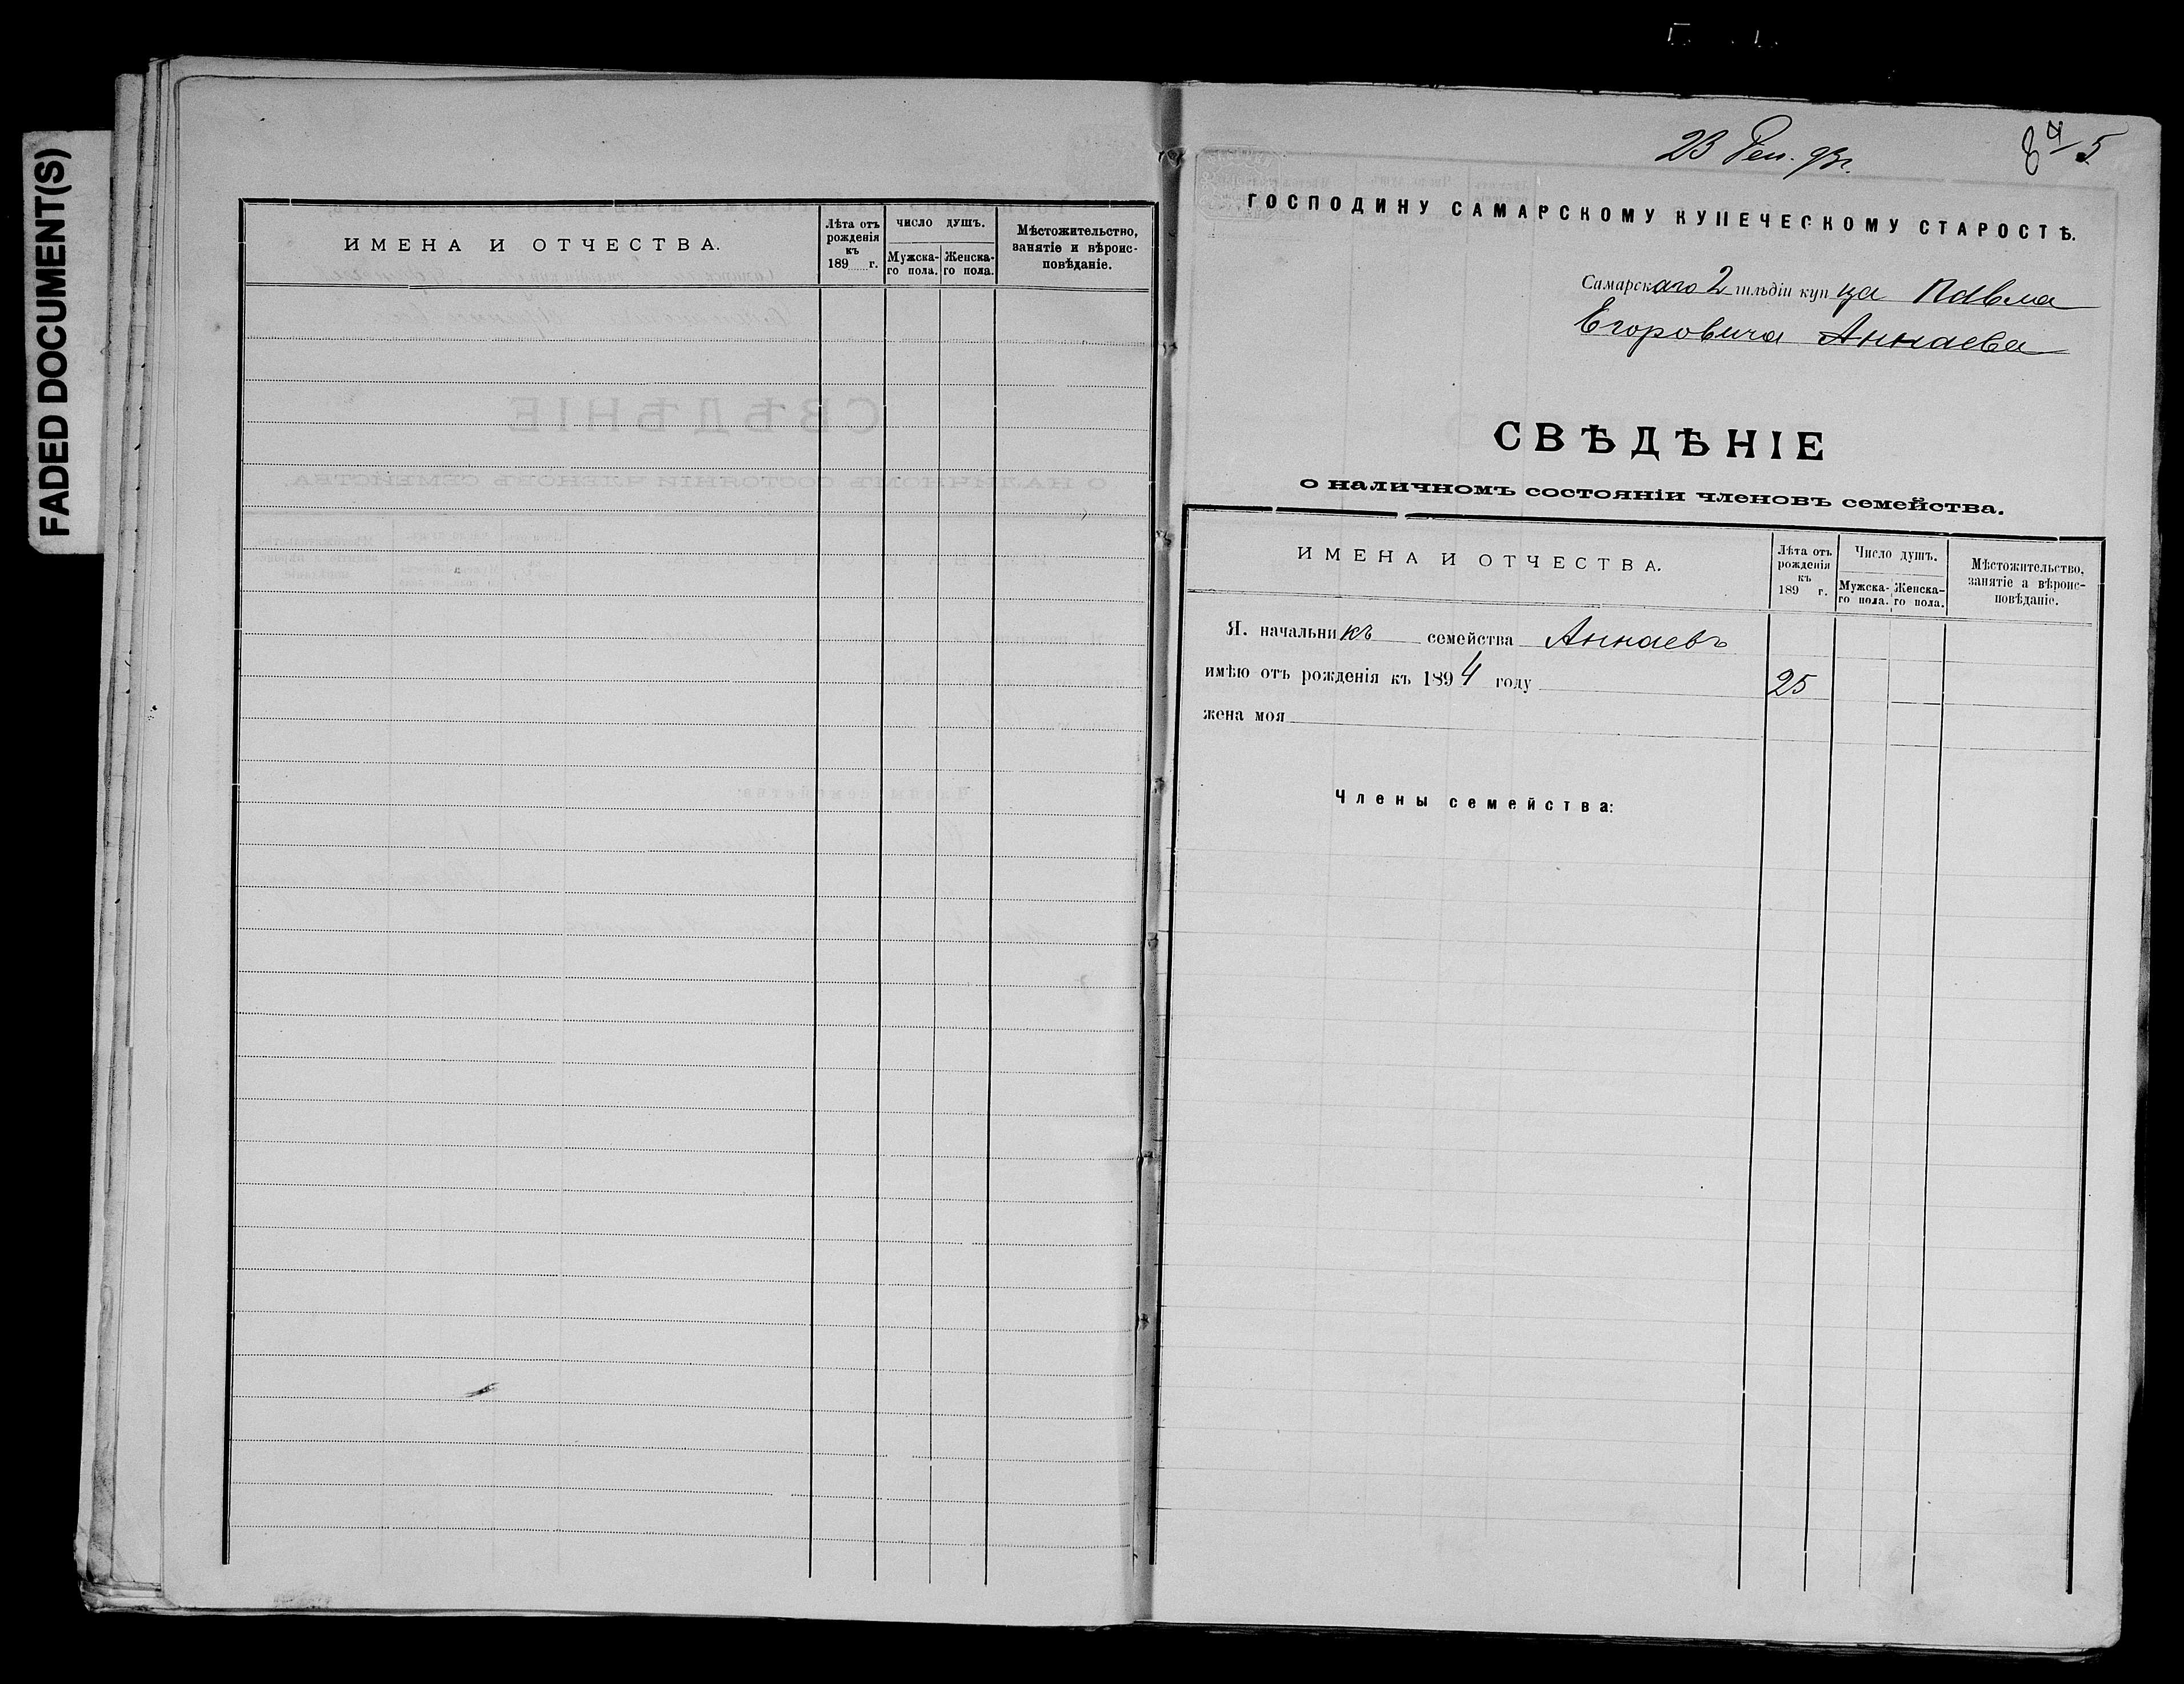 FADED DOCUMENT(S)
ИМЕНА И ОТЧЕСТВА.
Лѣта отъ рожденія къ 189 г.
число душъ.
Мужска-го пола.
Женска-го пола.
Мѣстожительство, занятіе и вѣроис-повѣданіе.
23 93г.
84 5
ГОСПОДИНУ САМАРСКОМУ КУПЕЧЕСКОМУ СТАРОСТѢ.
Самарскаго 2 гильдіи купца Павла
Егоровича Аннаева
СВѢДѢНІЕ
о наличномъ состояніи членовъ семейства.
ИМЕНА И ОТЧЕСТВА.
Лѣта отъ рожденія къ 189 г.
Число душъ.
Мужска-го пола.
Женска-го пола.
Мѣстожительство, занятіе а вѣроис-повѣданіе.
Я. начальникъ семейства Аннаевъ
имѣю отъ рожденія къ 1894 году 25
жена моя
Члены семейства: